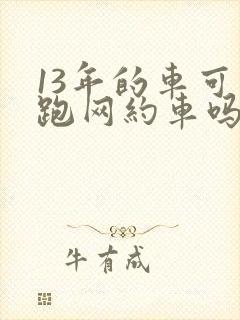 13年的車可
跑网約車吗
牛有成